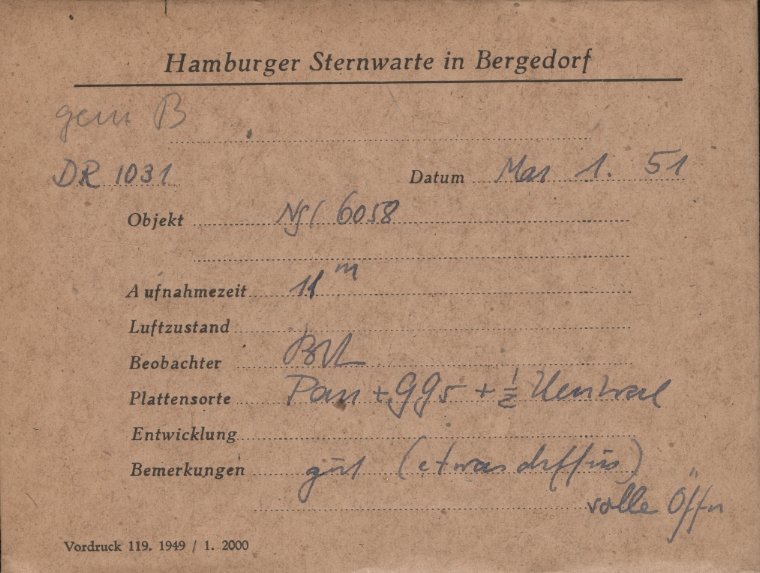 Hamburger Sternwarte in Bergedorf
gem B
DR 1031 Datum Mai 1. 51
Objekt NGC 6058
Aufnahmezeit 11 m
Luftzustand
Beobachter
Plattensorte Pan + GG5 + ½ Neutral
Entwicklung
Bemerkungen gut (etwas diffus)
volle Öffn
Vordruck 119. 1949 / 1. 2000